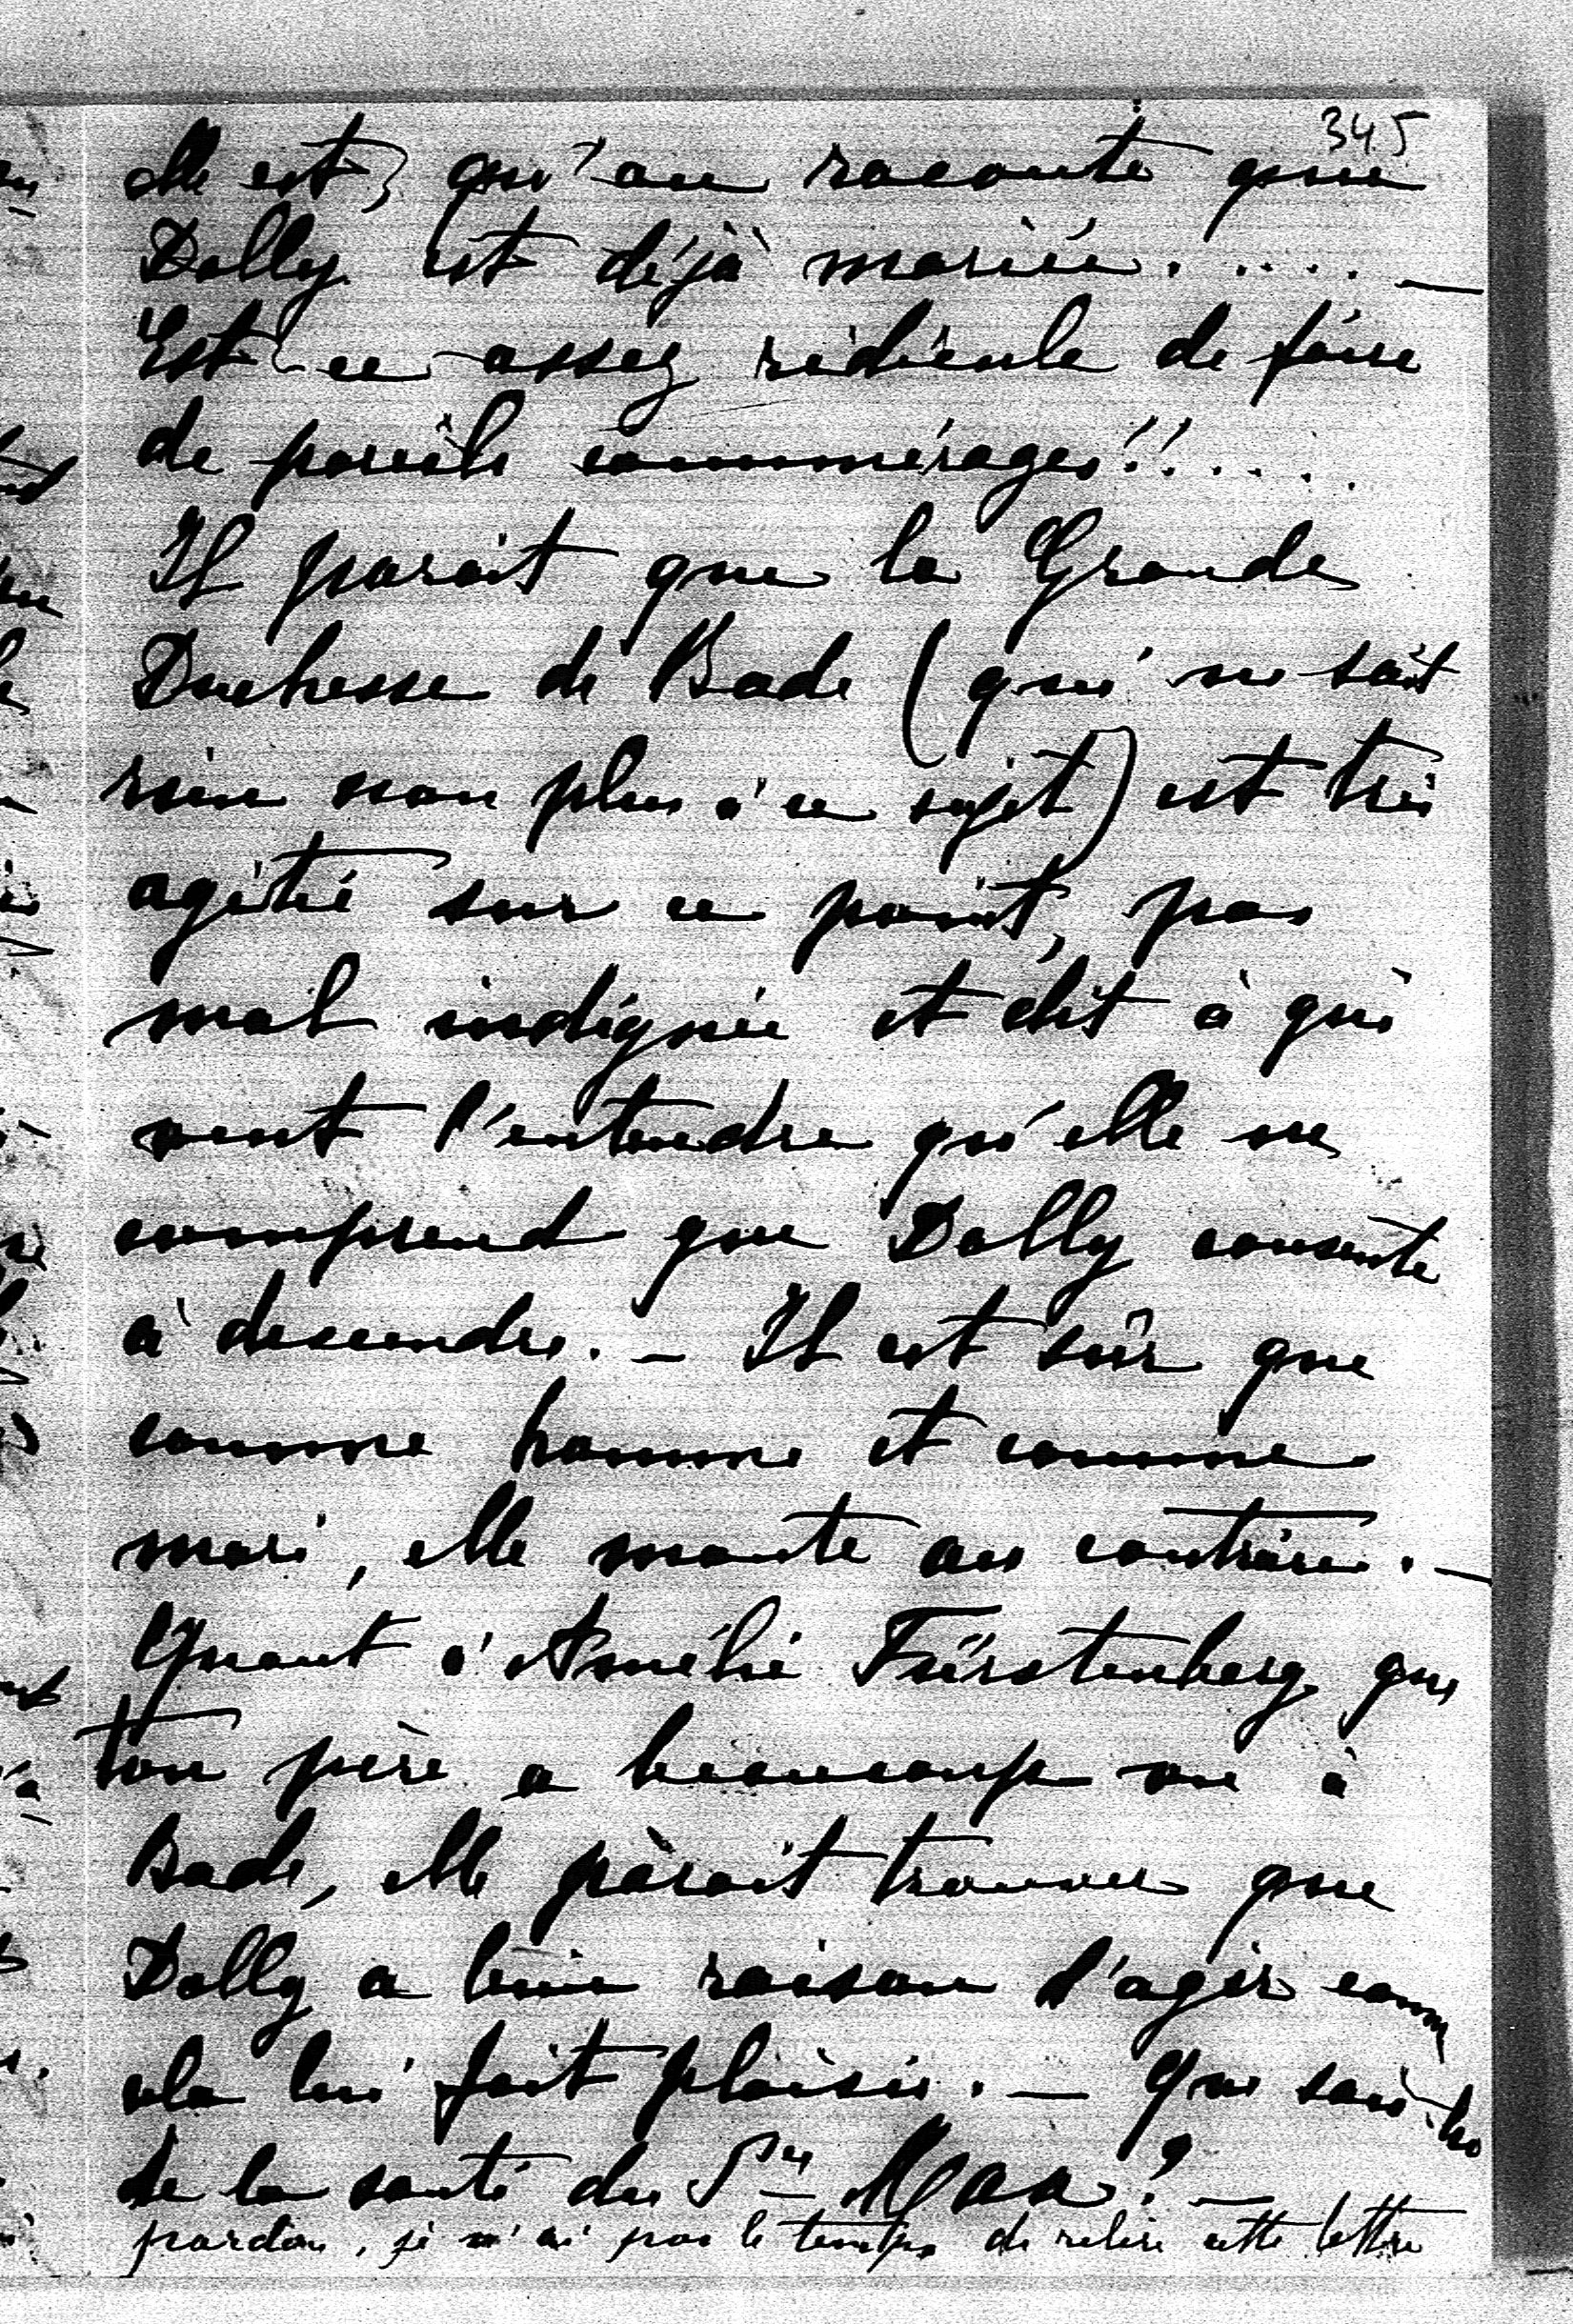 345
elle est, qu'on raconte que
Dolly est déjà mariée. .... —
Est-ce assez ridicule de faire
de pareils commérages!! ....
Il parait que la Grande
Duchesse de Bade (qui ne sait
rien non plus à ce sujet) est très
agitée sur ce point, pas
mal indignée et dit à qui
veut l'entendre qu'elle ne
comprend que Dolly consente
à descendre. — Il est sûr que
comme homme et comme
mari, elle monte au contraire. —
Quant à Amélie Fürstenberg que
ton père a beaucoup vue à
Bade, elle parait trouver que
Dolly a bien raison d'agir comm
cela lui fait plaisir. — Que sais-tu
de la santé du Pce Max? —
pardon, je n'ai pas le temps de relire cette lettre